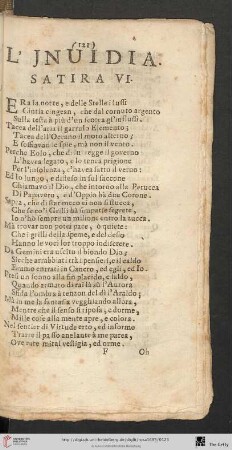 (121)
L'INUIDIA.
SATIRA VI.
ERa la notte, e delle Stelle i lussi
Cintia cingean, che dal cornuto argento
Sulla testa à più d'un
Tacea dell'aria il garrulo Elemento;
Tacea dell'Oceano il moto alterno;
E soffiavan le spie, mà non il vento.
Perche Eolo, che di lor regge il governo
L'havea legato, e lo tenea prigione
Per l'insolenza, c'havea fatto il verno:
Ed io lungo, e disteso in sul saccone
Chiamavo il Dio, che intorno alla Perucca
Di Papavero, ed'Oppio hà due Corone:
che di
Che se co' Grilli hà simpatie segrete,
Io n'hò sempre un milione entro la zucca.
Mà trovar non potei pace, ò quiete:
Che i grilli della speme, e del desio
Hanno le voci lor troppo indiscrete.
Da Gemini era uscito il biondo Dio;
Sicche arrabbiati trà i pensieri, e'l caldo
Eramo entrati in Cancro, ed egli, ed Io.
Presi un sonno alla fin placido, e saldo,
Quando armato di rai là sù l'Aurora
Sfida l'ombra à tenzon del dì l'Araldo;
Mà in me la fantasia vegghiando allora,
Mentre che il senso si riposa, e dorme,
Mille cose alla mente apre, e colora.
Nel sentier di Virtude erto, ed informe
Trarre il passo anelante à me parea,
Ove rare mirai vestigia, ed orme.
F Oh
The Getty